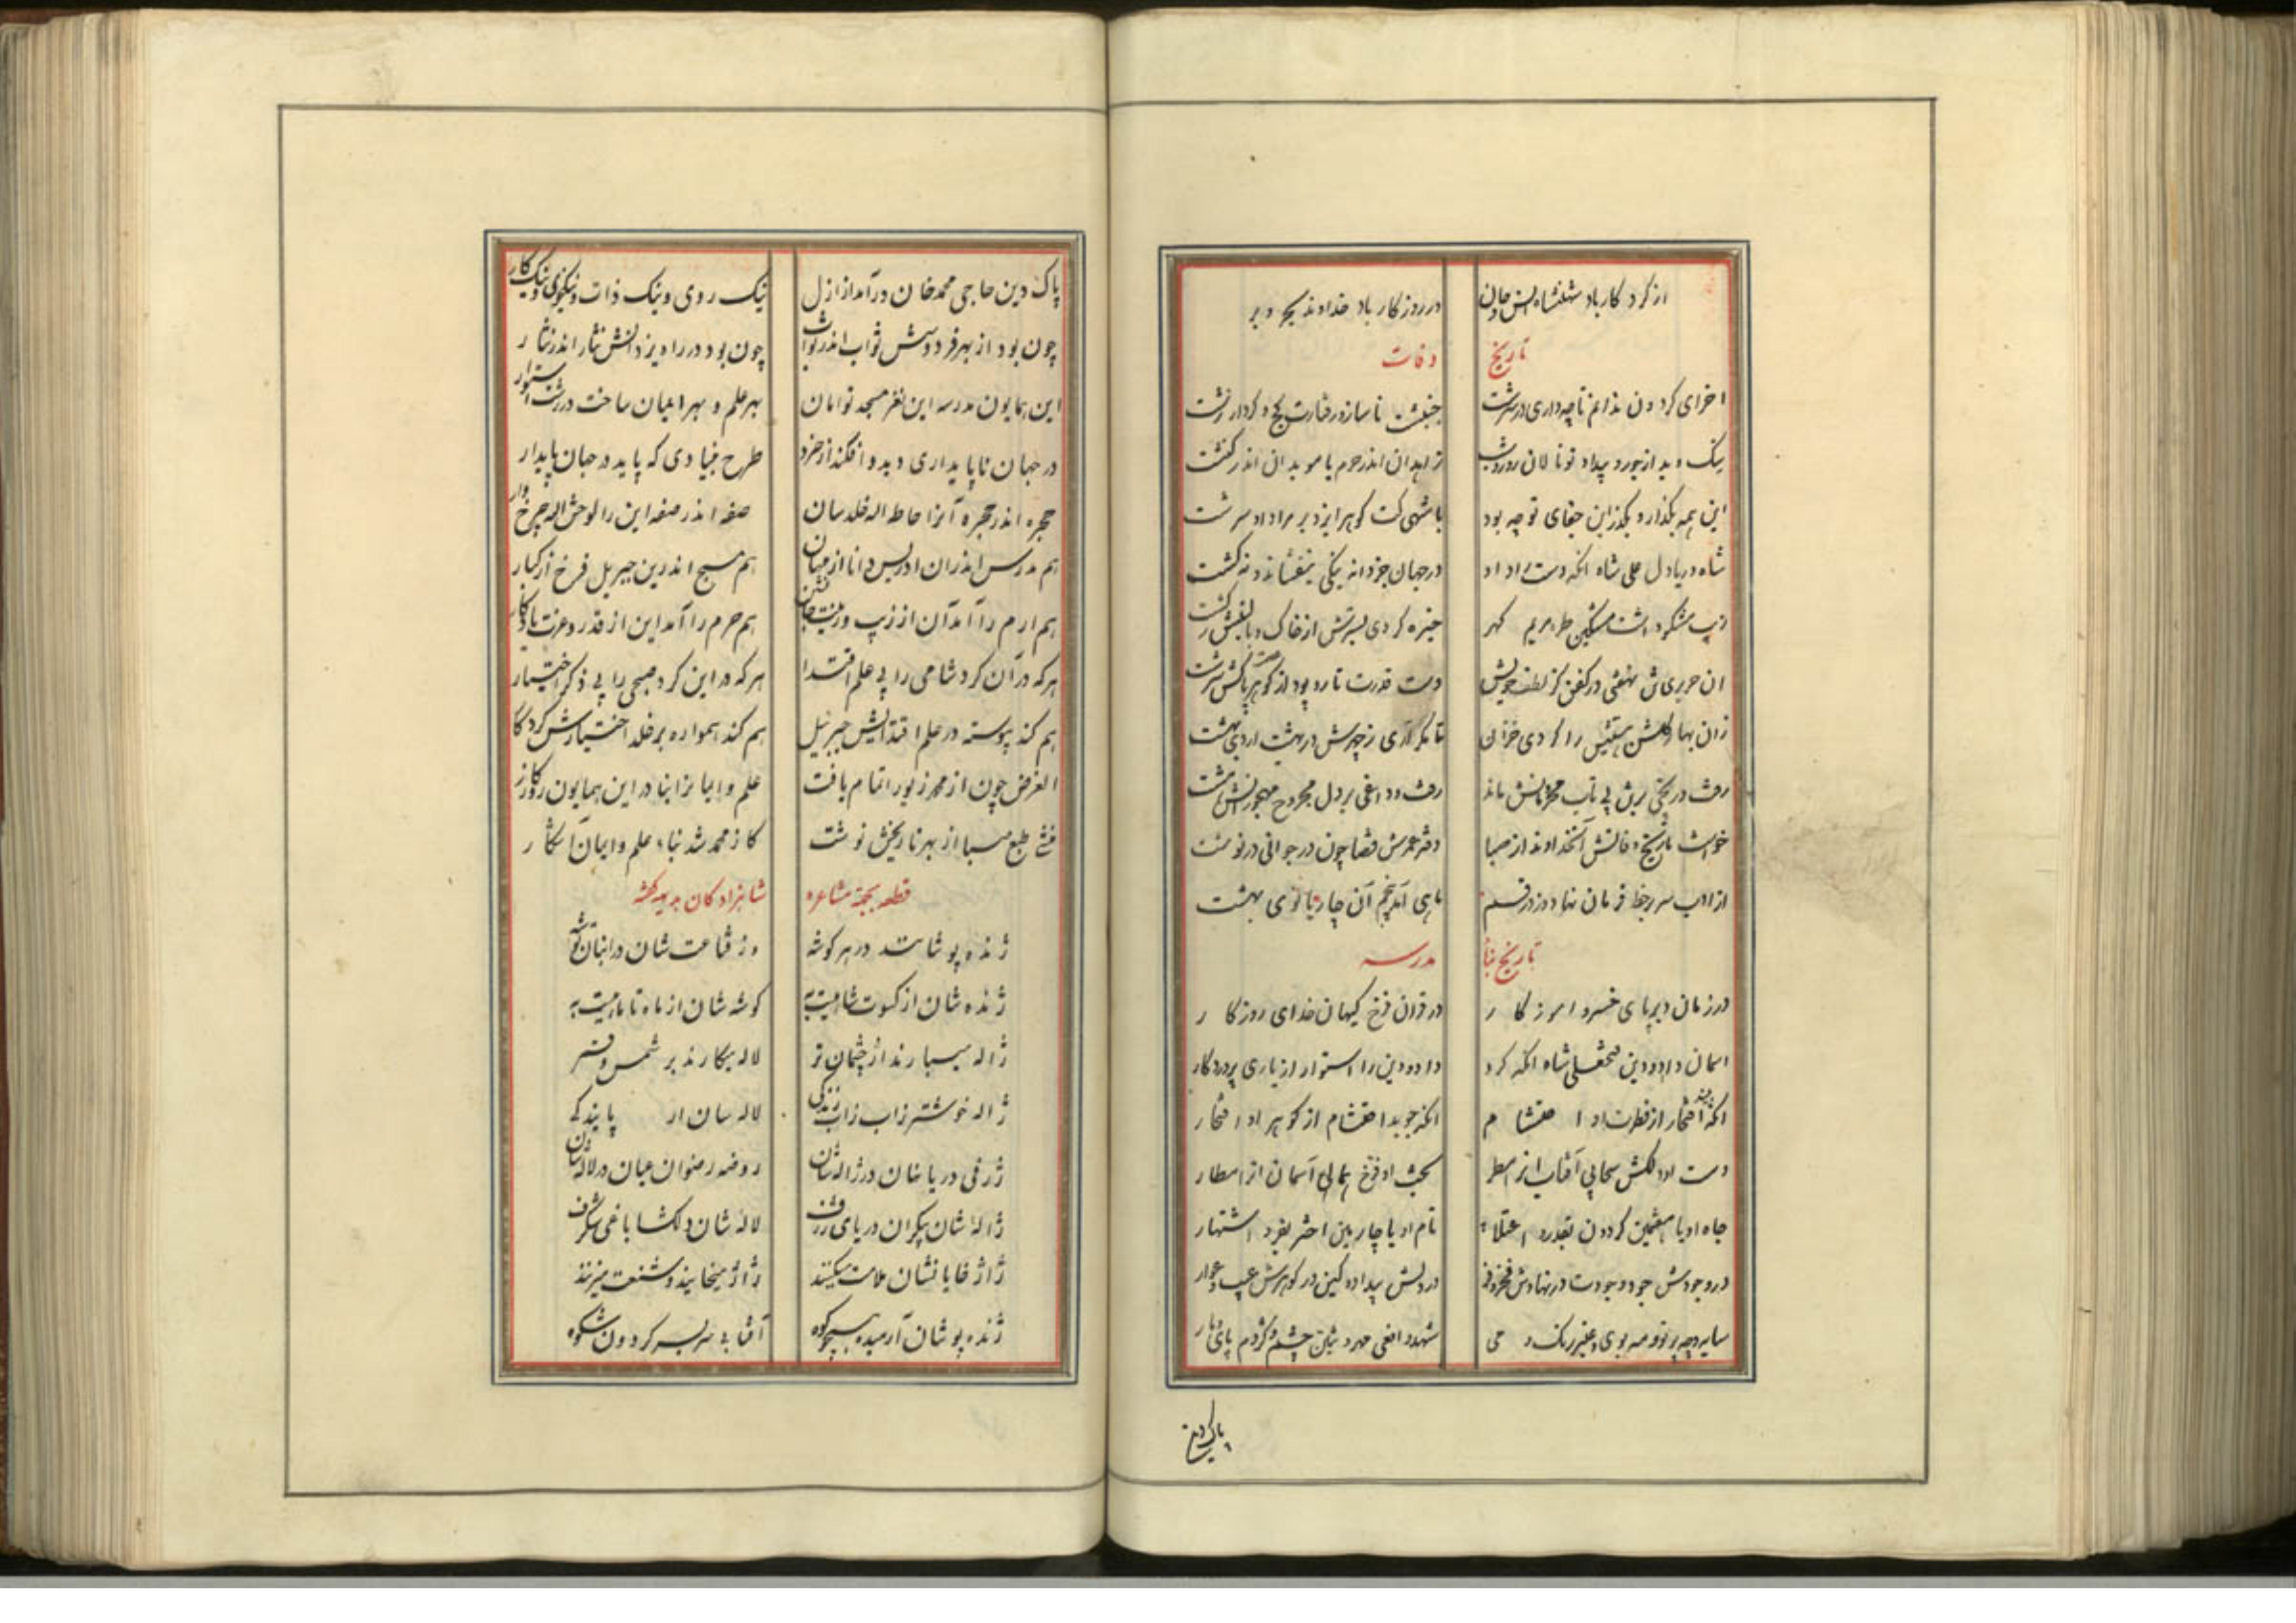 از کردکار باد شهنشاه انس و جان در روزکار باد خداوند بحر و بر
تاریخ وفات
اخر ای کردون ندانم تا چه داری در سرشت جنبشت ناساز و رفتارت کج و کردار زشت
یک و بد از جور و بیداد تو نالان روز و شب زاهدان اندر حرم یا موبدان اندر کنشت
این همه بکذار و بکذر این جفای تو چه بود با شهی کت کوهر ایزد بر مراد او سرشت
شاه دریادل علی شاه انکه دست راد او در جهان جز دانه نیکی نیفشاند و نه کشت
مشکین طره مریم کهر خیره کردی بسترش از خاک و بالینش ز خشت
ان حریری تن نهفتی در کفن کز لطف خویش دست قدرت تار و پود از کوهر پاکش سرشت
زان بهار کلشن هستیش را کردی خزان تا مکر آری ز چهرش در بهشت اردیبهشت
رفت در تختی برش بی تاب محرمانش ماند رفت و داغی بر دل مجروح مهجورانش هشت
خواست تاریخ وفاتش آنخداوند از صبا دفتر عمرش قضا چون در جوانی در نوشت
از ادب سر بر خط فرمان نهاد و زد رقم ماهی آمد پنجم آن چار بانوی بهشت
تاریخ بناء مدرسه
در زمان دیرپای خسرو امروز کار در قران فرخ کیهان خدای روزکار
اسمان داد و دین فتحعلی شاه انکه کرد داد و دین را استوار از یاری پروردکار
انکه افتخار از فطرت او احتشام انکه جوید احتشام از کوهر او افتخار
دست او دلکش سحابی آفتاب از مطر بخت او فرخ همائی آسمان
جاه او با هفتمین کردون بقدر و اعتلاء نام او با چارمین اختر بفر و اشتهار
در وجودش جود و جودت در نهادش فخر و فر در دلش بیداد و کین در کوهرش عیب و عوار
سایه و چهر تو و مه بوی و عنبر رنک و می شهد و افعی مهر و چشم و کژدم پای و مار
پاک دین
پاک دین حاجی محمدخان درآمد از ازل نیک روی و نیک ذات و نیکخوی و نیک کار
چون بود از بهر فردوسش ثواب اندر ثواب چون بود در راه یزدانش نثار اندر نثار
این همایون مدرسه این نغز مسجد توامان بهر علم و بهر اعیان ساخت در رشت استوار
در جهان ناپایداری دید و افکند از خرد طرح بنیادی که پاید در جهان پایدار
حجره اندر حجره آنرا حاطه الله خلدسان صفه اندر صفه این را لوحش الله چرخ وار
هم مدرس اندران ادریس دانا از جهان هم مسبح اندرین جبریل فرخ از کبار
هم ارم را آمد آن از زیب و زینت جانشین هم حرم را آمد این از قدر و عزت یادکار
هر که در آن کرد شامی را پی علم اقتدا هر که در این کرد صبحی را پی ذکر اختیار
هم کند پیوسته در علم اقتدایش جبرئیل هم کند همواره بر خلد اختیارش کردکار
الغرض چون از محمد زیور اتمام یافت علم و ایمانرا بنا در این همایون روزکار
منشی طبع صبا از بهر تاریخش نوشت کاز محمد شد بناء علم و ایمان آشکار
قطعه بجهة مشاعره شاهزادکان بدیهه کفته
ژنده پوشانند در هر کوشه وز قناعت شان در انبان توشه
ژنده شان از کسوت شاهیست به کوشه شان از ماه تا ماهیست به
ژاله میبارند از چشمان تر لاله میکارند بر شمس و قمر
ژاله خوشتر ز آب زندکی لاله سان از پایندکی
ژرفی دریا نهان در ژاله شان روضه رضوان عیان در لاله شان
ژاله شان بیکران دریای ژرف لاله شان دلکشا باغی شکرف
ژاژخایانشان ملامت میکنند ژاژ میخایند و شنعت میزنند
ژنده پوشان آرمیده همچو کوه آفتابی سر بسر کردون شکوه